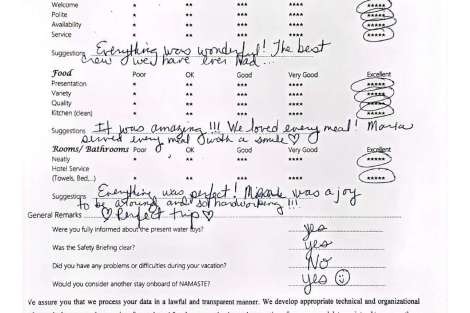 Welcome * ** *** **** *****
Polite * ** *** **** *****
Availability * ** *** **** *****
Service * ** *** **** *****
Suggestions Everything was wonderful! The best
crew we have ever had...
Food Poor OK Good Very Good Excellent
Presentation * ** *** **** *****
Variety * ** *** **** *****
Quality * ** *** **** *****
Kitchen (clean) * ** *** **** *****
Suggestions It was amazing!!! We loved every meal! Maria
served every meal with a smile ♡
Rooms/ Bathrooms Poor OK Good Very Good Excellent
Neatly * ** *** **** *****
Hotel Service
(Towels, Bed,...) * ** *** **** *****
Suggestions Everything was perfect! was a joy
to be around and so hardworking!!!
General Remarks ♡ Perfect trip ♡
Were you fully informed about the present water toys? yes
Was the Safety Briefing clear? yes
Did you have any problems or difficulties during your vacation? No
Would you consider another stay onboard of NAMASTE? yes ☺
We assure you that we process your data in a lawful and transparent manner. We develop appropriate technical and organizational